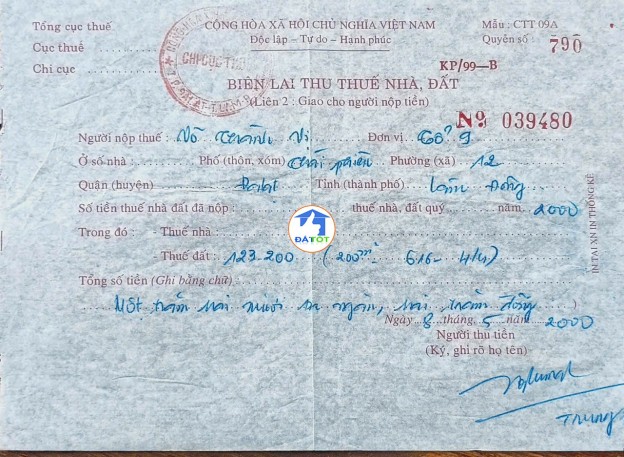 Tổng cục thuế
Cục thuế
Chi cục
CỘNG HÒA XÃ HỘI CHỦ NGHĨA VIỆT NAM
Độc lập – Tự do – Hạnh phúc
Mẫu : CTT 09A
Quyển số : 790
CHI CỤC THUẾ
KP/99—B
BIÊN LAI THU THUẾ NHÀ, ĐẤT
(Liên 2 : Giao cho người nộp tiền)
Nº 039480
Người nộp thuế : Võ Thành Vị Đơn vị Tổ 9
Ở số nhà : Phố (thôn, xóm) Thái Phiên Phường (xã) 12
Quận (huyện) Đalat Tỉnh (thành phố) Lâm Đồng
Số tiền thuế nhà đất đã nộp thuế nhà, đất quý năm 2000
Trong đó : - Thuế nhà :
- Thuế đất : 123.200 (200m² 616- 4/4)
ĐATỐT
Tổng số tiền (Ghi bằng chữ)
Một trăm hai mươi ba ngàn, hai trăm đồng
Ngày 8 tháng 5 năm 2000
Người thu tiền
(Ký, ghi rõ họ tên)
Trung
IN TẠI XN IN THỐNG KÊ